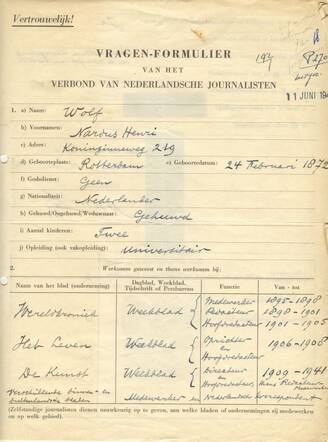 Vertrouwelijk!
VRAGEN-FORMULIER
VAN HET
VERBOND VAN NEDERLANDSCHE JOURNALISTEN
11 JUNI 194
1. a) Naam: Wolf
b) Voornamen: Nardus Henri
c) Adres: Koninginneweg 219
d) Geboorteplaats: Rotterdam e) Geboortedatum: 24 Februari 1872
f) Godsdienst: Geen
g) Nationaliteit: Nederlander
h) Gehuwd/Ongehuwd/Weduwnaar: Gehuwd
i) Aantal kinderen: Twee
j) Opleiding (ook vakopleiding): Universitair
2. Werkzaam geweest en thans werkzaam bij:
Naam van het blad (onderneming) Dagblad, Weekblad, Tijdschrift of Persbureau Functie Van - tot
Wereldkroniek Weekblad Medewerker 1895-1898
Redacteur 1898-1901
Hoofdredacteur 1901-1905
Het Leven Weekblad Oprichter en Hoofdredacteur 1906-1908
De Kunst Weekblad Directeur en Hoofdredacteur 1909-1941
Verschillende binnen- en buitenlandsche bladen Medewerker en Nederlandsch Correspondent
(Zelfstandige journalisten dienen nauwkeurig op te geven, aan welke bladen of ondernemingen zij medewerken
en op welk gebied).